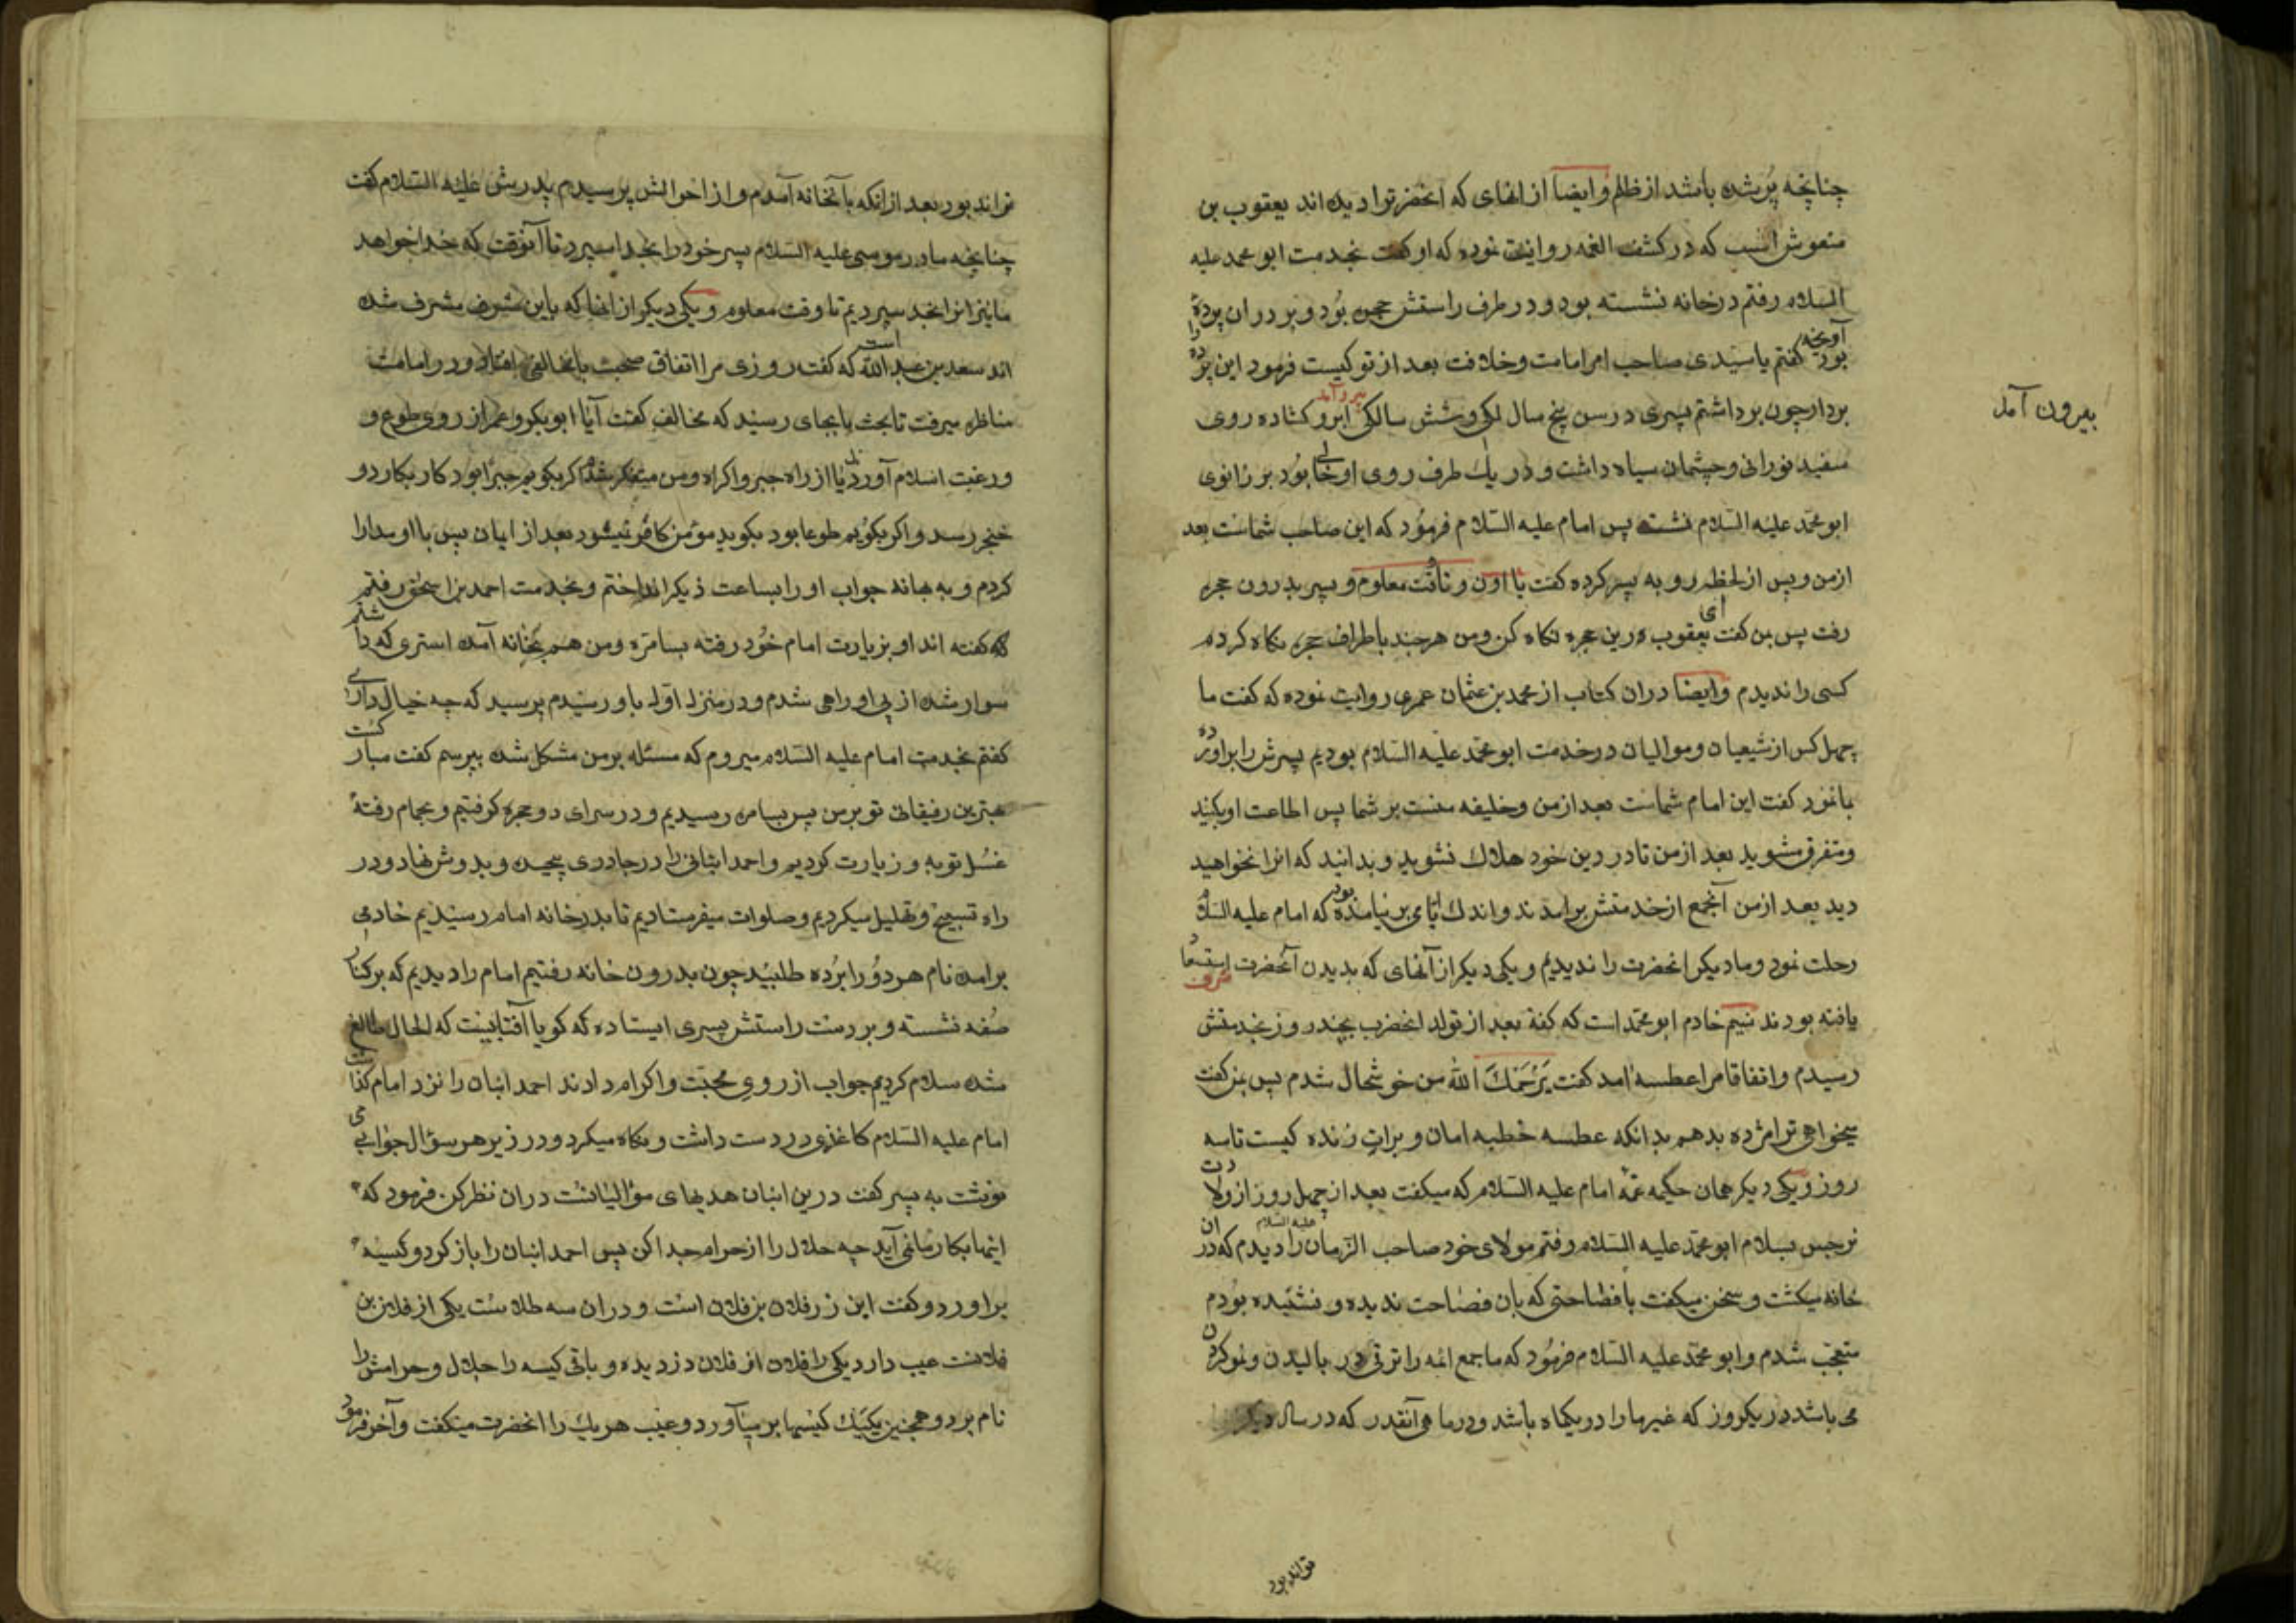 چنانچه پر شده باشد از ظلم وایضا از انهای که انحضرترا دیده اند یعقوب بن
منقوش است که در کشف الغمه روایت نموده که او گفت بخدمت ابو محمد علیه
السلام رفتم در خانه نشسته بود و در طرف راستش حجره بود و بر در ان پرده
آویخته بود گفتم یا سیدی صاحب امر امامت و خلافت بعد از تو کیست فرمود این پرده را
بردار چون برداشتم پسری در سن پنج سالکی و شش سالکی بیرون آمد ابرو کشاده روی
بیرون آمد
سفید نورانی و چشمان سیاه داشت و در یک طرف روی او خالی بود بر زانوی
ابو محمد علیه السلام نشست پس امام علیه السلام فرمود که این صاحب شماست بعد
از من و پس از لحظه رو به پسر کرده گفت معلوم و پسر بدرون حجره
رفت پس بمن گفت ای یعقوب درین حجره نکاه کن و من هر چند باطراف حجره نکاه کردم
کسی را ندیدم وایضا در ان کتاب از محمد بن عثمان عمری روایت نموده که گفت ما
چهل کس از شیعیان و موالیان در خدمت ابو محمد علیه السلام بودیم پسرش را بر آورده
بما نمود گفت این امام شماست بعد از من و خلیفه منست بر شما پس اطاعت او بکنید
و متفرق مشوید بعد از من تا در دین خود هلاک نشوید و بدانید که انرا نخواهید
دید بعد از من آنجمع از خدمتش برامدند و اندک ایامی بر نیامده بود که امام علیه السلام
رحلت نمود و ما دیکر انحضرت را ندیدیم و یکی دیکر از آنهای که بدیدن آنحضرت
یافته بودند نسیم خادم ابو محمد است که گفته بعد از تولد انحضرت بچند روز بخدمتش
رسیدم و اتفاقا مرا عطسه امد گفت یرحمک الله من خوشحال شدم پس بمن گفت
میخواهی ترا مژده بدهم بدانکه عطسه خطبه امان و برات زنده کیست تا سه
روز و یکی دیکر همان حکیمه عمه امام علیه السلام که میکفت بعد از چهل روز از ولادت
نرجس بسلام ابو محمد علیه السلام رفتم مولای خود صاحب الزمان علیه السلام را دیدم که در ان
خانه میکشت و سخن میکفت بافصاحتی که بان فصاحت ندیده و نشنیده بودم
متعجب شدم و ابو محمد علیه السلام فرمود که ما جمع ائمه را ترقی در بالیدن و نمو کردن
می باشد در یکروز که غیر ما را در یکماه باشد و در ماهی آنقدر که در سال دیکر
تواند بود
تواند بود بعد از انکه بآنخانه آمدم و از احوالش پرسیدم پدرش علیه السلام گفت
چنانچه مادر موسی علیه السلام پسر خود را بخدا سپرد تا آنوقت که خدا خواهد
ما نیز انرا بخدا سپردیم تا وقت معلوم و یکی دیکر از انها که باین شرف مشرف شده
اند سعد بن عبد الله است که گفت روزی مرا اتفاق صحبت بامخالفی افتاد و در امامت
مناظره میرفت تا بحث بابجای رسید که مخالف گفت آیا ابو بکر و عمر از روی طوع و
و رغبت اسلام آوردند یا از راه جبر و اکراه و من متفکر شدم اکر بکویم جبرا بود کار بکارد و
خنجر رسد و اکر بکویم طوعا بود بکوید مؤمن کافر نمیشود بعد از ایمان پس با او مدارا
کردم و به بهانه جواب او را بساعت دیکر انداختم و بخدمت احمد بن اسحق رفتم
که گفته اند او بزیارت امام خود رفته بسامره و من هم بخانه آمده استری که داشتم
سوار شده از پی او راهی شدم و در منزل اول باو رسیدم پرسید که چه خیال داری
کفتم بخدمت امام علیه السلام میروم که مسئله بر من مشکل شده بپرسم کفت مبارکست
بهترین رفیقانی تو بر من پس بسامره رسیدیم و در سرای دو حجره کرفتیم و بحمام رفته
غسل توبه و زیارت کردیم و احمد انبانی را در چادری پیچیده و بدوش نهاد و در
راه تسبیح و تهلیل میکردیم و صلوات میفرستادیم تا بدر خانه امام رسیدیم خادمی
برامده نام هر دو را برده طلبید چون بدرون خانه رفتیم امام را دیدیم که بر کنار
صفه نشسته و بر دست راستش پسری ایستاده که کویا آفتابیست که الحال طالع
شده سلام کردیم جواب از روی محبت و اکرام دادند احمد انبان را نزد امام کذاشت
امام علیه السلام کاغذی در دست داشت و نکاه میکرد و در زیر هر سؤال جوابی می
نوشت به پسر کفت درین انبان هدیهای موالیانست در ان نظر کن فرمود که
اینها بکار ما نمی آید چه حلال را از حرام جدا کن پس احمد انبان را باز کرد و کیسه
براورد و کفت این زر فلان بن فلان است و در ان سه طلاست یکی از فلان بن
فلانست عیب دارد یکی را فلان از فلان دزدیده و باقی کیسه را حلال و حرامش را
نام برد و همچنین یکیک کیسها بر میآورد و عیب هر یک را انحضرت میکفت و آخر فرمود